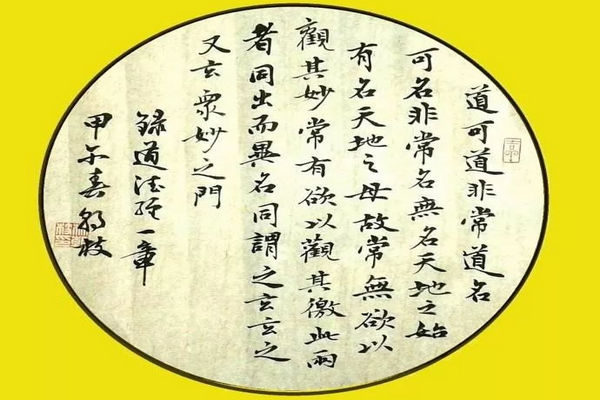 道可道非常道名
可名非常名無名天地之始
有名天地之母故常無欲以
觀其妙常有欲以觀其徼此兩
者同出而異名同謂之玄玄之
又玄衆妙之門
錄道德經一章
甲午春枝